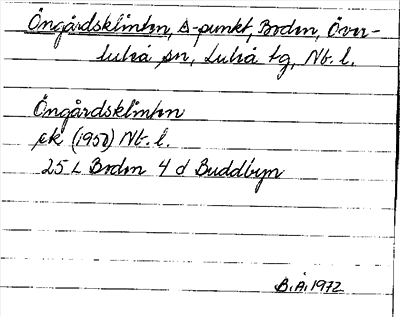 Öngårdsklinten, Δ-punkt, Boden, Över-
luleå sn, Luleå tg, Nb. l.
Öngårdsklinten
ek (1950) Nb. l.
25 L Boden 4 d Buddbyn
B. Å. 1972